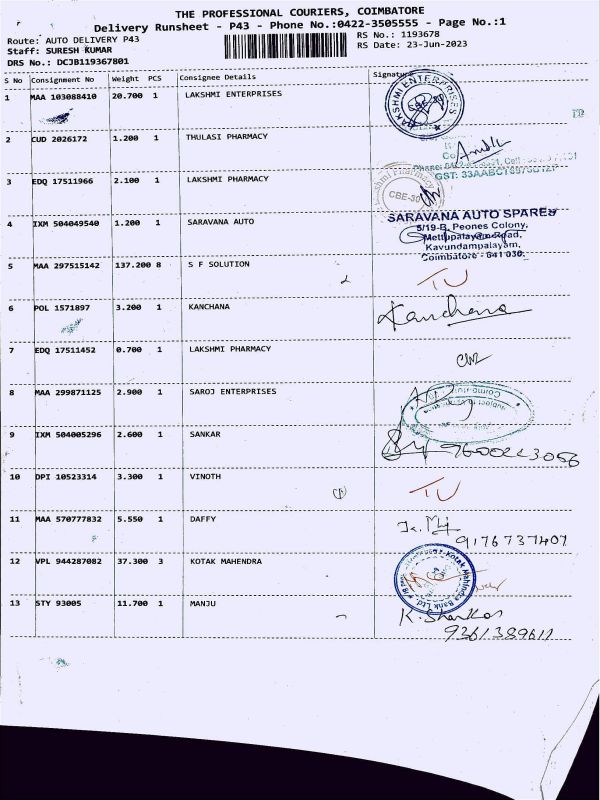 THE PROFESSIONAL COURIERS, COIMBATORE
Delivery Runsheet - P43 - Phone No.:0422-3505555 - Page No.:1
Route: AUTO DELIVERY P43 RS No.: 1193678
Staff: SURESH KUMAR RS Date: 23-Jun-2023
DRS No.: DCJB119367801
S No Consignment No Weight PCS Consignee Details Signature
1 MAA 103088410 20.700 1 LAKSHMI ENTERPRISES LAKSHMI ENTERPRISES
2 CUD 2026172 1.200 1 THULASI PHARMACY
3 EDQ 17511966 2.100 1 LAKSHMI PHARMACY CBE-30
4 IXM 504049540 1.200 1 SARAVANA AUTO SARAVANA AUTO SPARES
5/19-B, Peones Colony,
Mettupalayam Road,
Kavundampalayam,
Coimbatore - 641 030.
5 MAA 297515142 137.200 8 S F SOLUTION TU
6 POL 1571897 3.200 1 KANCHANA Kanchana
7 EDQ 17511452 0.700 1 LAKSHMI PHARMACY
8 MAA 299871125 2.900 1 SAROJ ENTERPRISES
9 IXM 504005296 2.600 1 SANKAR
10 DPI 10523314 3.300 1 VINOTH TU
11 MAA 570777832 5.550 1 DAFFY
9176737407
12 VPL 944287082 37.300 3 KOTAK MAHENDRA Kotak Mahindra Bank Ltd.
13 STY 93005 11.700 1 MANJU K. Shankar
9361389611